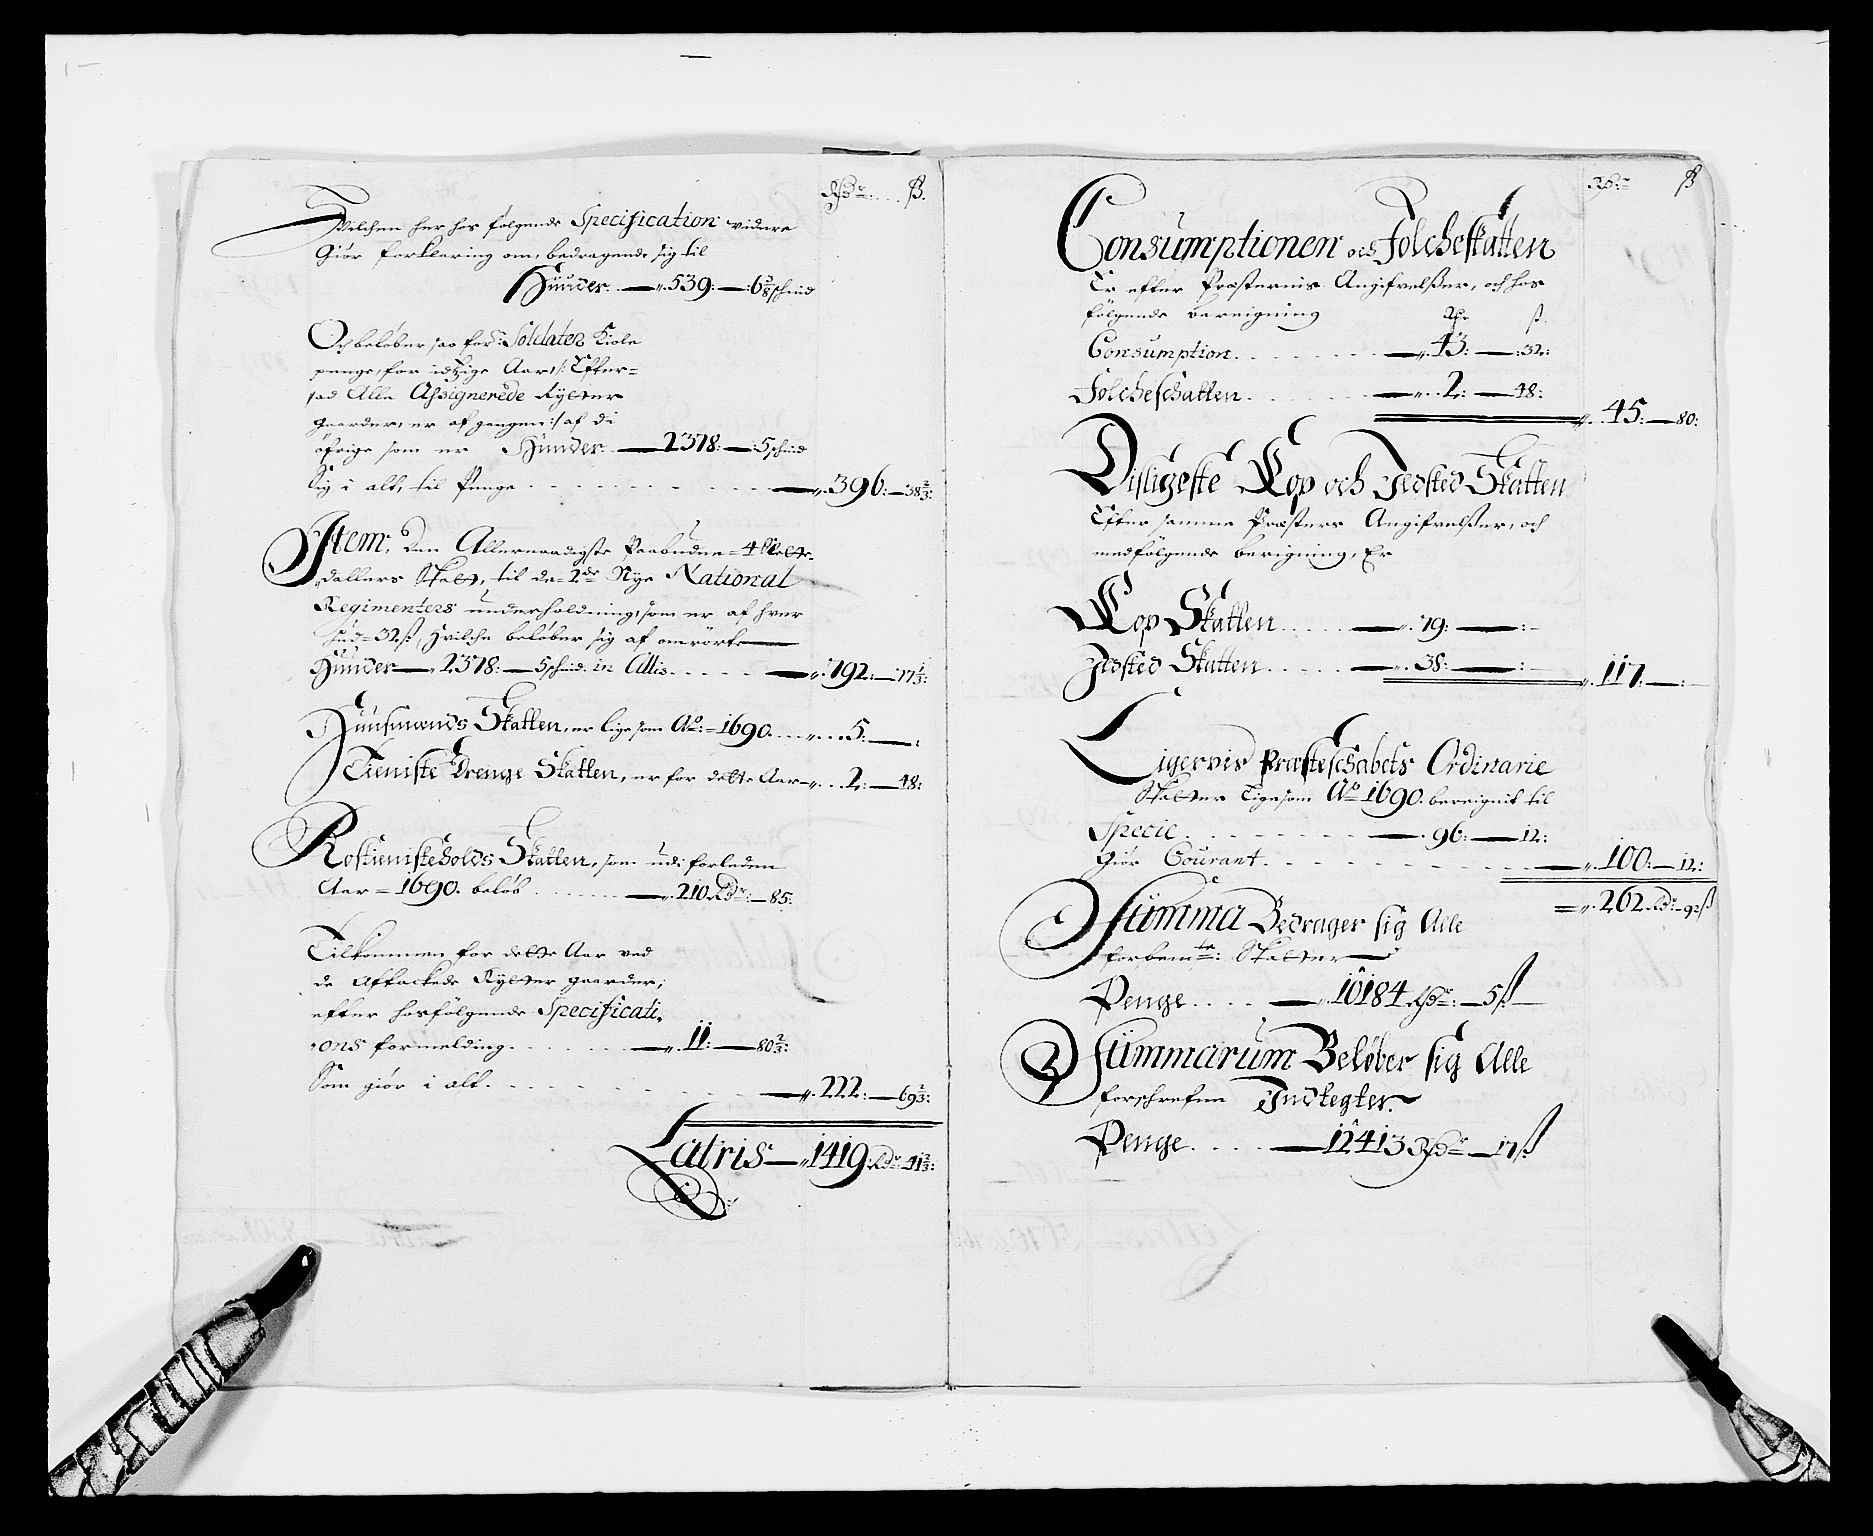 Rdr. ß.
Hvilchen her hos følgende Specification videre
Giör forklaring om, bedragende sig til
Huuder. — 539: — 6 5/8 schind
Och beløber saa for: Soldater Kiole
penge, for idtzige Aar, /: Efter=
sad Alle Assignerede Rytter
gaarder, er afgangen :/ af di
öfrige som er Huuder — 2378: — 5 schind
Sig i alt, til Penge . . . — 396: — 38 2/3:
Item, Den Allernaadigste Paabudne = 4
dallers Skatt, til de = 2de Nye National
Regimenters underholdning, som er af hver
hud = 32 ß, hvilche beløber sig af omrörte
Huuder — 2378: — 5 schind. in Allis . . . — 792: — 77 1/3:
Huusmands Skatten, er lige som Ao: = 1690. . . . 5: — :
Tieniste Drenge Skatten, er for dette Aar — . . 2: — 48:
Rostienisteholds Skatten, som udi forleden
Aar = 1690. beløb . . . — 210 Rdr: — 85:
Tilkommen for dette Aar ved
de Aftackede Rytter gaarder;
efter hosfölgende Specificati,
,ons formelding. . . — 11: — 80 2/3:
Som giör i alt. . . . — 222: — 69 2/3:
Latris — 1419: Rdr 41 2/3:
Rdr: ß
Consumptionen och Folcheskatten
Er efter Præsternis Angifvelsser, och hos
fölgende bereigning Rdr ß.
Consumption. . . . — 43: — :32:
Folcheschatten. . . . — 2: — 48:
45: — 80:
Disligeste Kop och Ildsted Skatten
Efter samme Præsters Angifvelsser, och
medfölgende berigning, Er
Kop Skatten . . . — 79: — : —
Ildsted Skatten . . . — 38: — : —
117: — :
Ligervis Præsteschabets Ordinarie
Skatter Ligesom Ao 1690. bereignit til
Specie. . . . — 96: — 12:
Giör Courant. . . . — 100: — 12:
262 Rdr: — 92 ß
Summa Bedrager sig Alle
forbemte: Skatter
Penge. . . . — 10184 Rdr: — 5 ß
Summarum Beløber sig Alle
forschrefne Indtegter.
Penge. . . . — 12413 Rdr — 17 ß